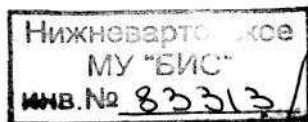 Нижневартовское
МУ "БИС"
инв.№ 83313